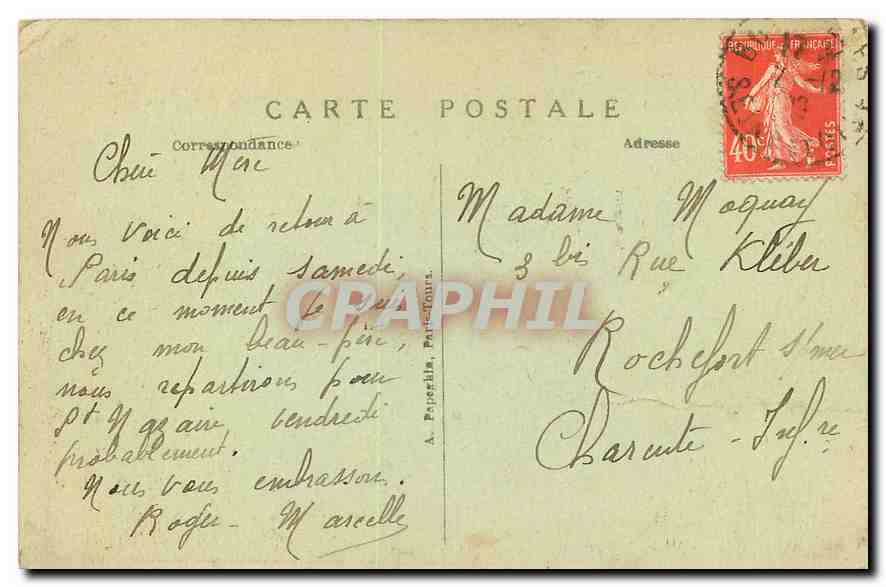 CARTE POSTALE
Correspondance
Adresse
REPUBLIQUE FRANÇAISE
40c
POSTES
Chère Mère
Nous voici de retour à
Paris depuis samedi,
en ce moment je suis
chez mon beau-père,
nous repartirons pour
St Nazaire, vendredi
probablement.
Nous vous embrassons.
Roger - Marcelle
A. Papeghin, Paris-Tours.
Madame Moquay
3 bis Rue Kléber
Rochefort s/mer
Charente - Inf.re
CPAPHIL